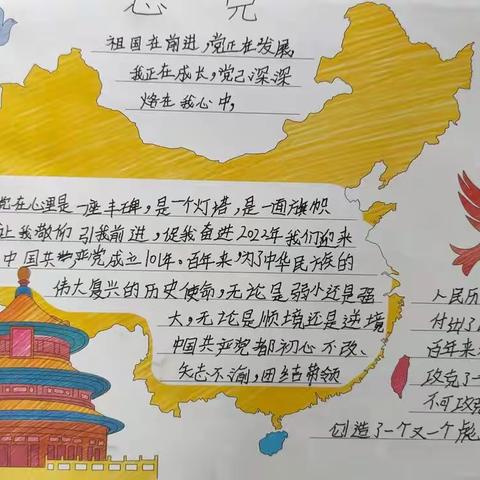 祖国在前进,党正在发展
我正在成长,党已深深
烙在我心中,
党在心里是一座丰碑,是一个灯塔,是一面旗帜
让我敬仰 引我前进,促我奋进2022年我们的来
中国共产党成立101年。百年来,为了中华民族的
伟大复兴的历史使命,无论是弱小还是强
大,无论是顺境还是逆境
中国共产党都初心不改、
矢志不渝,团结带领
人民历
付出了
百年来
攻克了一
不可攻克
创造了一个又一个彪